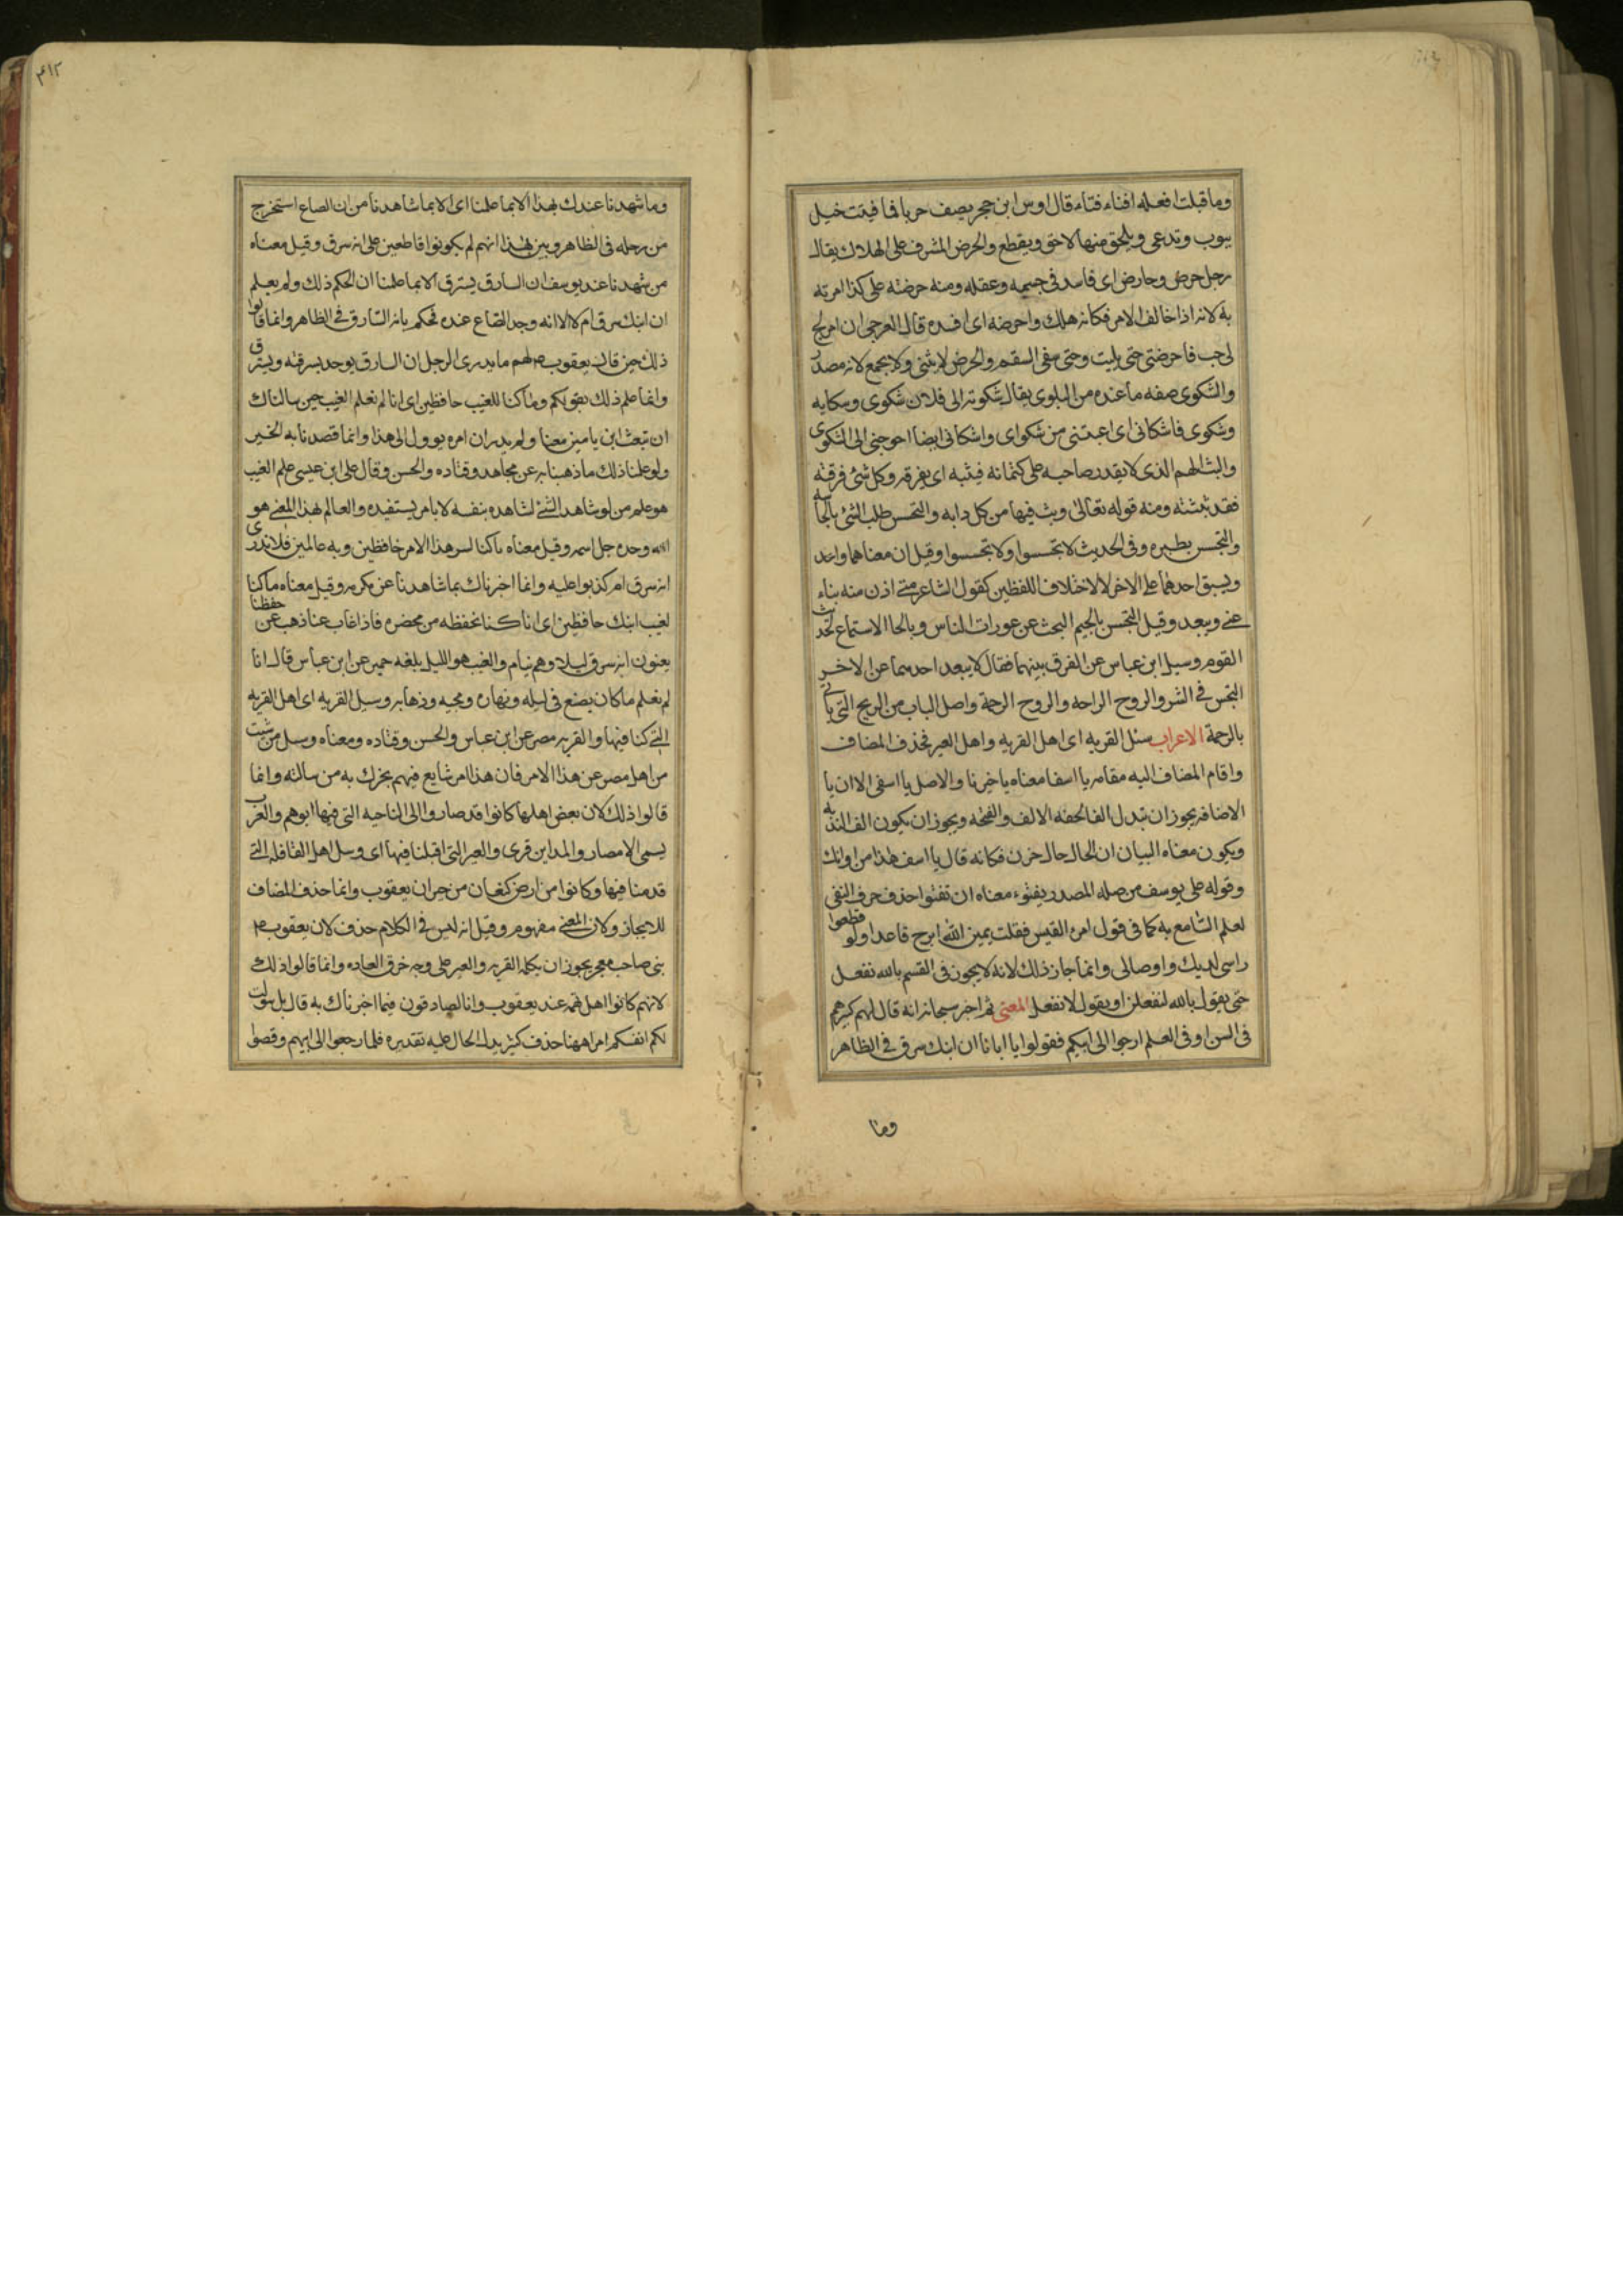 وما قبلت افعله افناء فتاء قال اوس ابن حجر يصف حربا فما فيئت خيل
يوب وتدعى ويلحق منها لاحق ويقطع والحرض المشرف على الهلاك يقال
رجل حرض وحارض اى فاسد فى جسمه وعقله ومنه حرضته على كذا امرته
به لانه اذا خالف الامر فكانه هلك واحرضه اى افسده قال العرجى ان امرء لج
لى حب فاحرضنى حتى بليت وحتى شفى السقم والحرض لا يثنى ولا يجمع لانه مصدر
والشكوى صفه ما عنده من البلوى يقال شكوته الى فلان شكوى وشكايه
وشكوى فاشكانى اى اعتبنى من شكواى واشكانى ايضا احوجنى الى الشكوى
والبث الهم الذى لا يقدر صاحبه على كتمانه فيثبه اى يفرقه وكل شئ فرقته
فقد بثثته ومنه قوله تعالى وبث فيها من كل دابه والتحسس طلب الشئ بالحاسه
والتجسس نظيره وفى الحديث لا تحسسوا ولا تجسسوا وقيل ان معناهما واحد
ويسبق احدهما على الاخر لاختلاف اللفظين كقول الشاعر متى ادن منه يناء
عنى ويبعد وقيل التجسس بالجيم البحث عن عورات الناس وبالحا الاستماع لحديث
القوم وسيل ابن عباس عن الفرق بينهما فقال لا يبعد احدهما عن الاخر
التجسس فى الشر والروح الراحه والروح الرحمة واصل الباب من الريح التى ياتى
بالرحمة الاعراب سئل القريه اى اهل القريه واهل العير فحذف المضاف
واقام المضاف اليه مقامه يا اسفا معناه يا حزنا والاصل يا اسفى الا ان يا
الاضافه يجوز ان تبدل الفا لخفه الالف والفتحه ويجوز ان يكون الف الندبه
ويكون معناه البيان ان الحال حال حزن فكانه قال يا اسف هذا من اوانك
وقوله على يوسف من صله المصدر يفتوء معناه ان تفتوا حذف حرف النفى
لعلم السامع به كما فى قول امرء القيس فقلت يمين الله ابرح قاعدا ولو قطعوا
راسى لديك واوصالى وانما جاز ذلك لانه لا يجوز فى القسم بالله نفعل
حتى يقول بالله لنفعلن او يقول لا نفعل المعنى ثم اخبر سبحانه انه قال لهم كبيرهم
فى السن او فى العلم ارجوا الى ابيكم فقولوا يا ابانا ان ابنك سرق فى الظاهر
وما
٤١٢
وما شهدنا عندك بهذا الا بما علمنا اى الا بما شاهدنا من ان الصاع استخرج
من رحله فى الظاهر وبين بهذا انهم لم يكونوا قاطعين على انه سرق وقيل معناه
من شهدنا عند يوسف ان السارق يسترق الا بما علمنا ان الحكم ذلك ولم يعلم
ان ابنك سرق ام لا الا انه وجد الصاع عنده فحكم بانه السارق فى الظاهر وانما قالوا
ذلك حين قال يعقوب لهم ما يدرى الرجل ان السارق يوخذ بسرقته ويسترق
وانما علم ذلك بقولكم وما كنا للغيب حافظين اى انا لم نعلم الغيب حين سالناك
ان تبعث ابن يامين معنا ولم يدر ان امره يوول الى هذا وانما قصدنا به الخير
ولو علمنا ذلك ما ذهبنا به عن مجاهد وقتاده والحسن وقال على ابن عيسى علم الغيب
هو علم من لو شاهد الشئ لشاهده بنفسه لا بامر يستفيده والعالم بهذا المعنى هو
الله وحده جل اسمه وقيل معناه ما كنا لسر هذا الامر حافظين وبه عالمين فلا ندرى
انه سرق ام كذبوا عليه وانما اخبرناك بما شاهدنا عن مكرمه وقيل معناه ما كنا
لغيب ابنك حافظين اى انا كنا نحفظه من محضره فاذا غاب عنا ذهب عن حفظنا
يعنون انه سرق ليلا وهم نيام والغيب هو الليل بلغه حمير عن ابن عباس قال انا
لم نعلم ما كان يصنع فى ليله ونهاره ومجيه وذهابه وسيل القريه اى اهل القريه
التى كنا فيها والقريه مصر عن ابن عباس والحسن وقتاده ومعناه وسل من شئت
من اهل مصر عن هذا الامر فان هذا امر شايع فيهم يخبرك به من سالته وانما
قالوا ذلك لان بعض اهلها كانوا قد صاروا الى الناحيه التى فيها ابوهم والعرب
يسمى الامصار والمداين قرى والعير التى اقبلنا فيها اى وسل اهل القافله التى
قدمنا فيها وكانوا من ارض كنعان من جيران يعقوب وانما حذف المضاف
للايجاز ولان المعنى مفهوم وقيل انه ليس فى الكلام حذف لان يعقوب
نبى صاحب معجز يجوز ان يكلمه القريه والعير على وجه خرق العاده وانما قالوا ذلك
لانهم كانوا اهل تهمه عند يعقوب وانا لصادقون فيما اخبرناك به قال بل سولت
لكم انفسكم امرا ههنا حذف كثير يدل الحال عليه تقديره فلما رجعوا الى ابيهم وقصوا